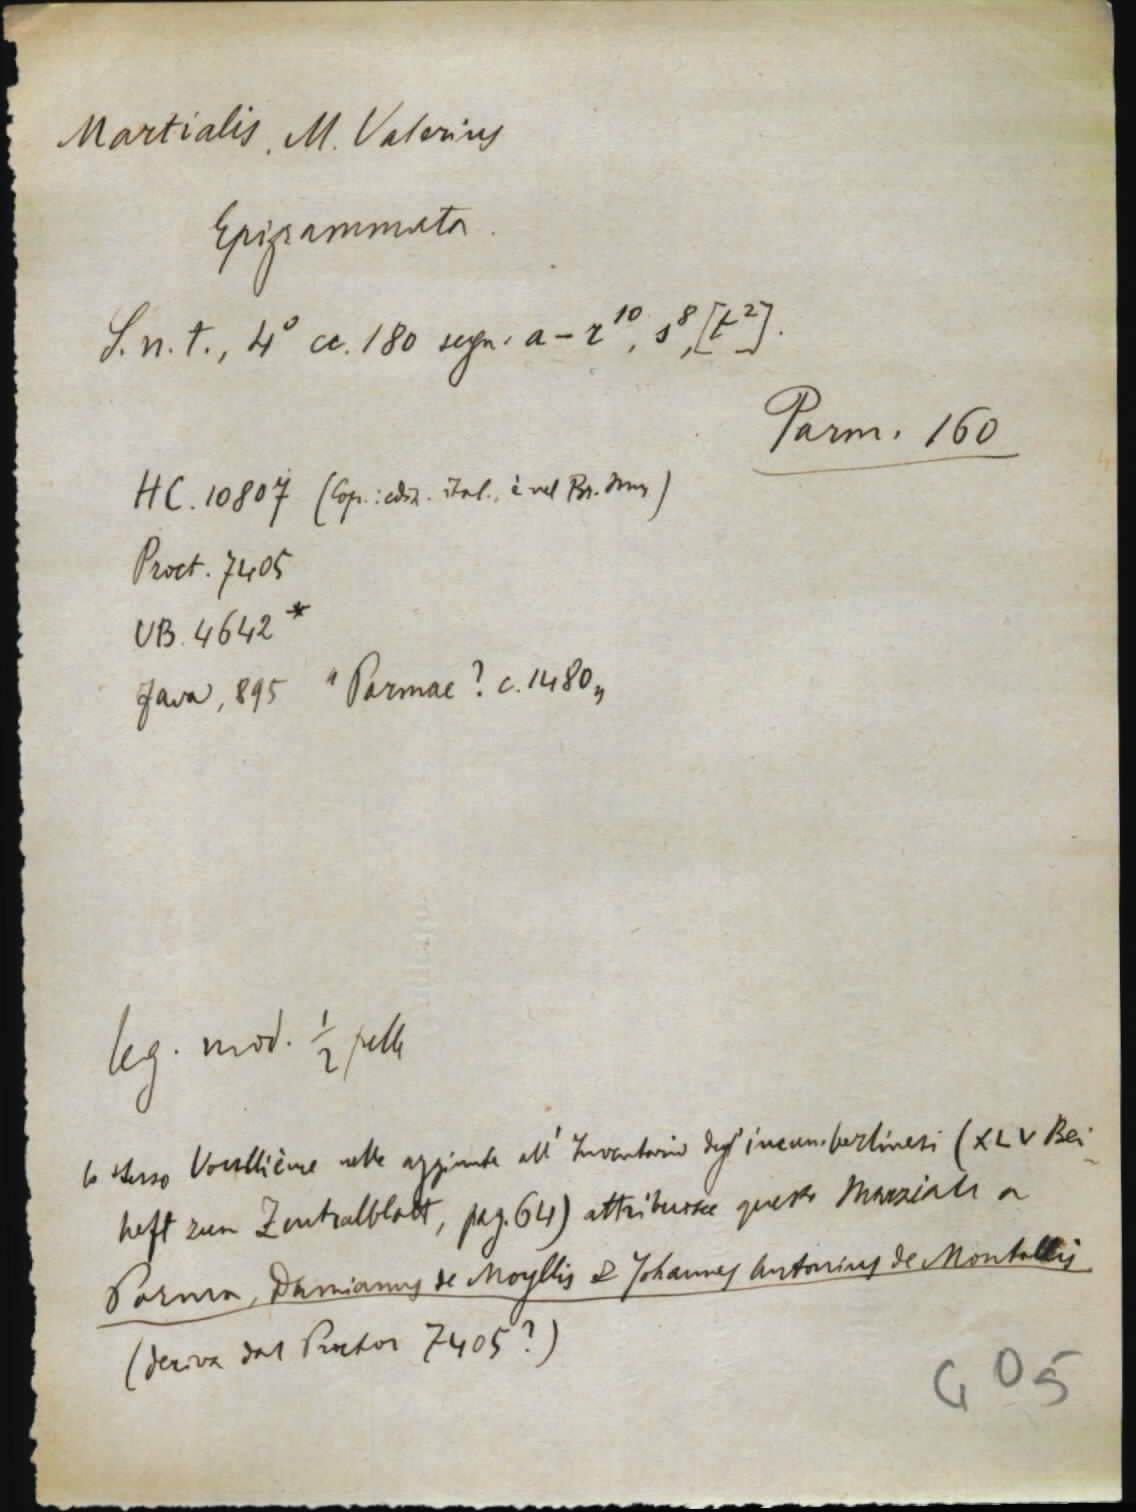 Martialis, M. Valerius
Epigrammata.
S.n.t., 4° cc. 180 segn. a-r¹⁰, s⁸, [t²].
Parm. 160
HC. 10807 (Cop.: ediz. ital., è nel Br. Mus)
Proct. 7405
VB. 4642*
Fava, 895 "Parmae? c. 1480„
leg. mod. ½ pelle
lo stesso Voullième nelle aggiunte all'Inventario degl'incun. berlinesi (XLV Bei-
heft zum Zentralblatt, pag. 64) attribuisce questo Marziale a
Parma, Damianus de Moyllis & Johannes Antonius de Montallis
(deriva dal Proctor 7405?)